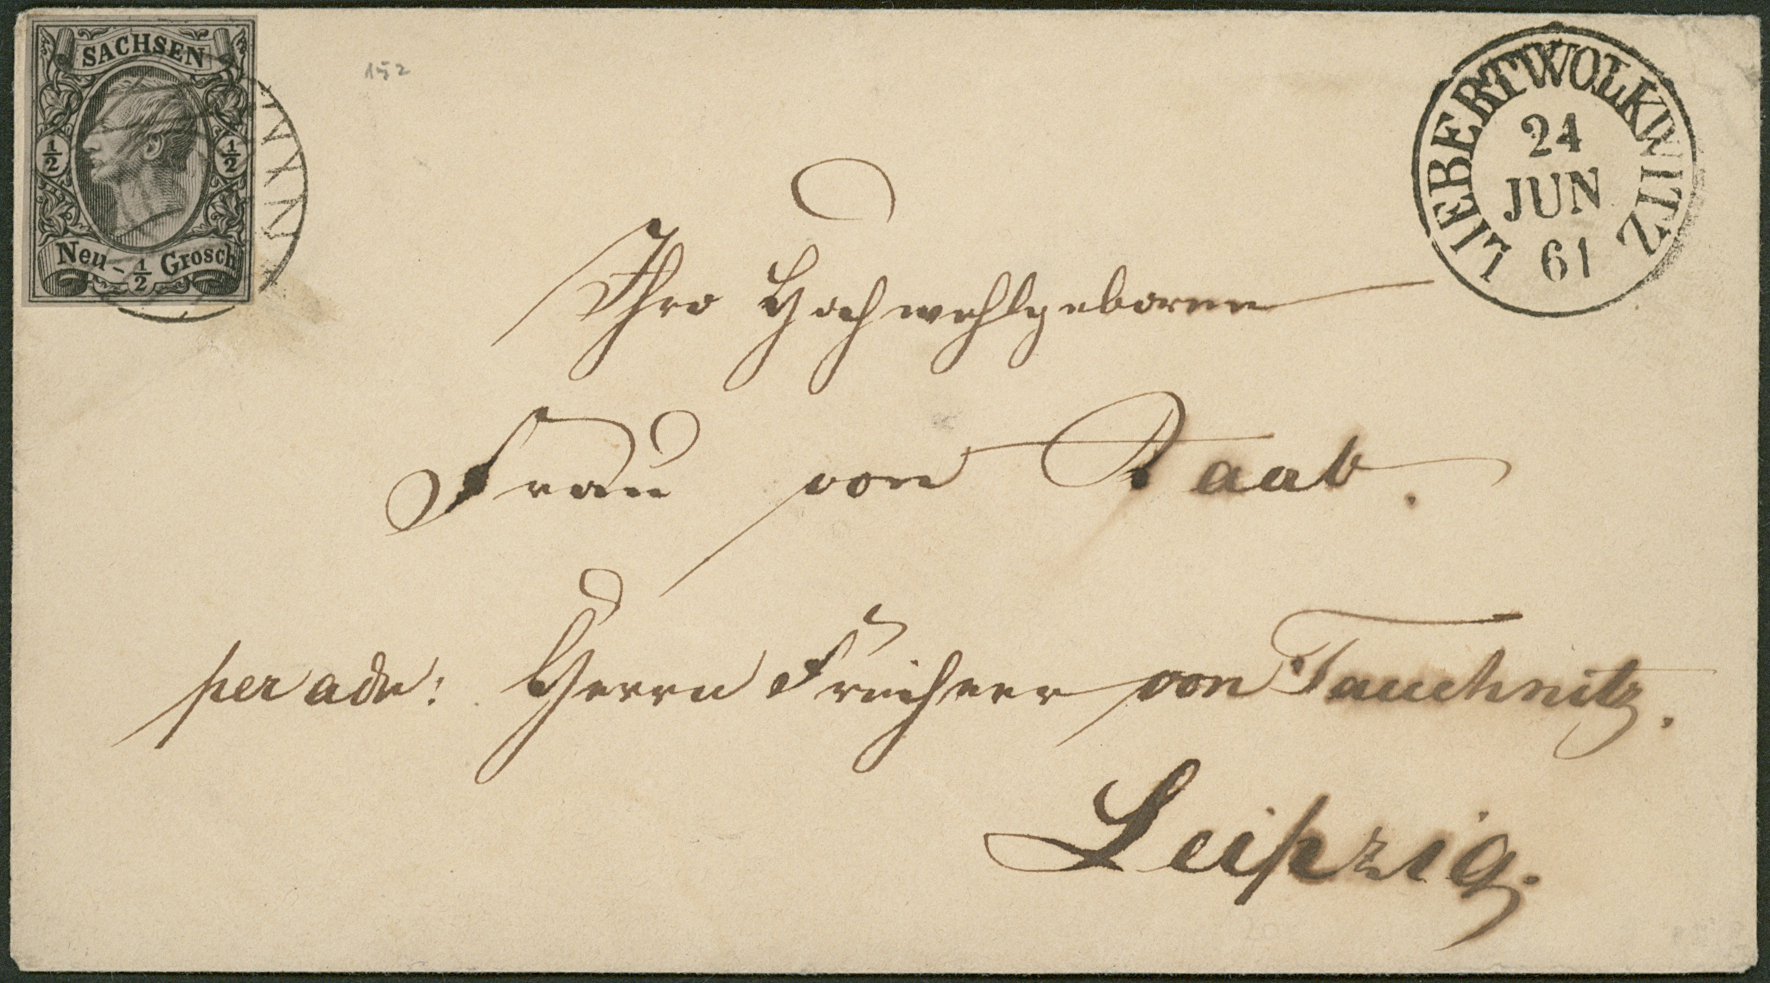 SACHSEN
1/2 1/2
Neu - 1/2 Grosch
152
LIEBERTWOLKWITZ
24
JUN
61
Ihro Hochwohlgeboren
Frau von Raab.
per adr: Herrn Freiherr von Tauchnitz.
Leipzig.